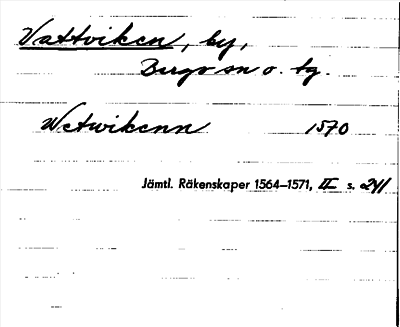 Vattviken, by,
Bergs sn o. tg.
Wetwikenn 1570
Jämtl. Räkenskaper 1564–1571, II s. 241